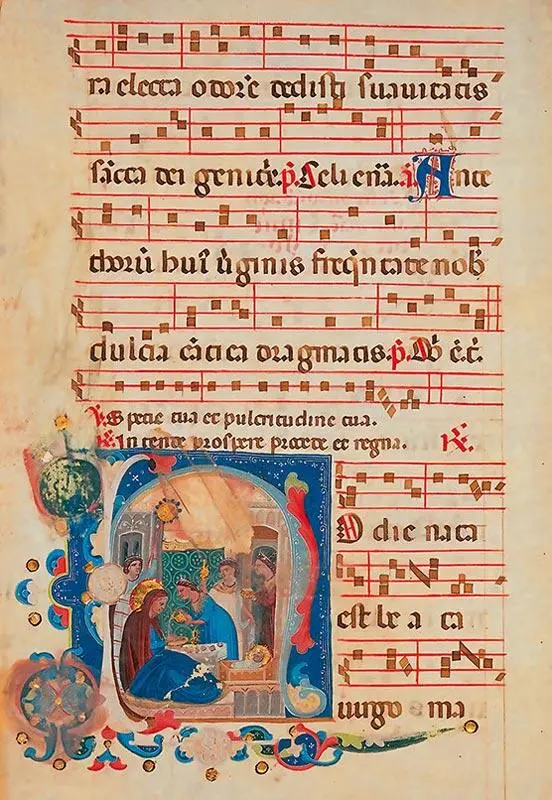 ra electa odore dedisti suauitatis
sācta dei genitr̄. p̄. Celi enā. ā. Ante
thorū huī ūginis freq̄ntate nob̄
dulcia cātica dragmatis. p̄.
Specie tua et pulcritudine tua.
Intende prospere procede et regna. R̄.
Hodie nata
est be a ta
uirgo ma